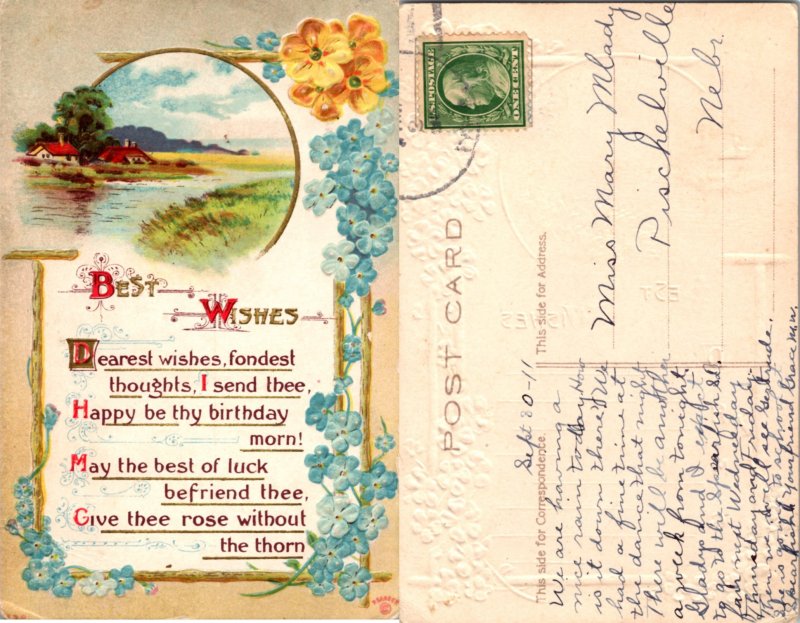 Best
Wishes
Dearest wishes, fondest
thoughts, I send thee,
Happy be thy birthday
morn!
May the best of luck
befriend thee,
Give thee rose without
the thorn
U.S. POSTAGE
ONE CENT
POST CARD
This side for Correspondence.
This side for Address.
Miss Mary Mlady
Pischelville
Nebr.
Sept 20-11
We are having a
nice rain today How
is it down there? We
had a fine time at
the dance that night
There will be another
a week from tonight
Gladys and I expect
to go to the Spearfish St.
fair next Wednesday
Thursday and Friday.
Then we will see Gertrude.
She is going to school at
Spearfish Your friend Grace